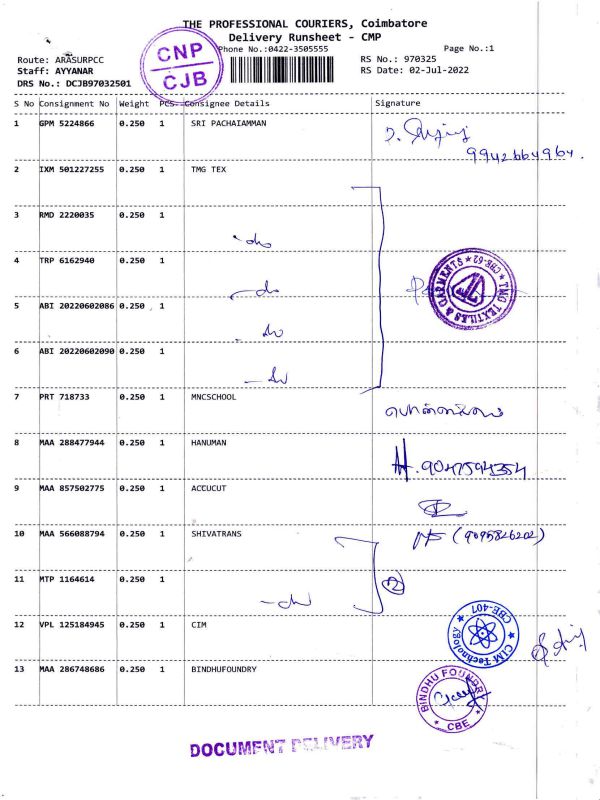 THE PROFESSIONAL COURIERS, Coimbatore
Delivery Runsheet - CMP
Phone No.:0422-3505555
Page No.:1
Route: ARASURPCC
Staff: AYYANAR
DRS No.: DCJB97032501
RS No.: 970325
RS Date: 02-Jul-2022
CNP
CJB
S No Consignment No Weight PCS Consignee Details Signature
1 GPM 5224866 0.250 1 SRI PACHAIAMMAN
9942664964.
2 IXM 501227255 0.250 1 TMG TEX
3 RMD 2220035 0.250 1
4 TRP 6162940 0.250 1
TMG TEXTILES & GARMENTS ★ CBE-62 ★
5 ABI 20220602086 0.250 1
6 ABI 20220602090 0.250 1
7 PRT 718733 0.250 1 MNCSCHOOL
8 MAA 288477944 0.250 1 HANUMAN
9047594354
9 MAA 857502775 0.250 1 ACCUCUT
10 MAA 566088794 0.250 1 SHIVATRANS
(9095826202)
11 MTP 1164614 0.250 1
2
12 VPL 125184945 0.250 1 CIM
★ CIM Technology ★ CBE-407
13 MAA 286748686 0.250 1 BINDHUFOUNDRY
BINDHU FOUNDRY
★ CBE ★
DOCUMENT DELIVERY